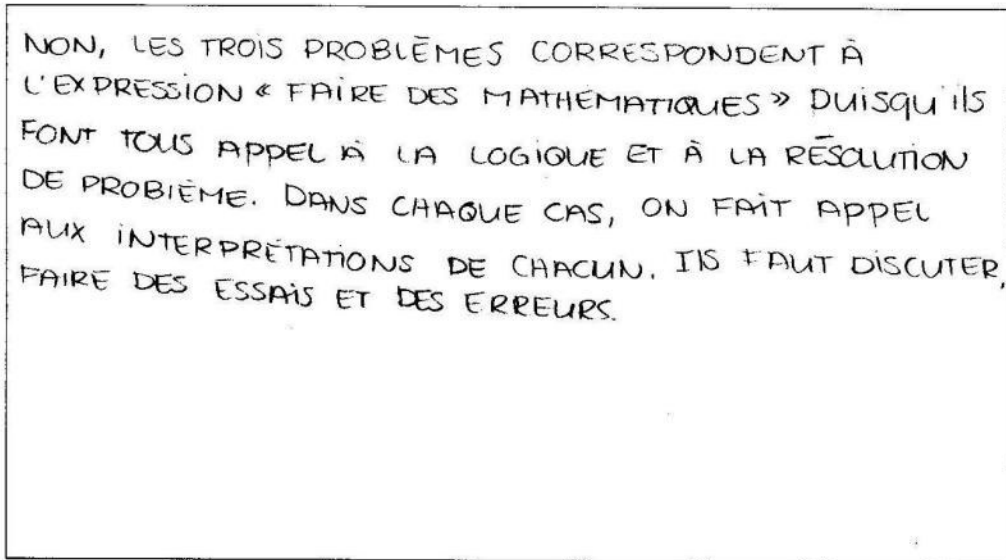 NON, LES TROIS PROBLÈMES CORRESPONDENT À
L'EXPRESSION « FAIRE DES MATHÉMATIQUES » PUISQU'ILS
FONT TOUS APPEL À LA LOGIQUE ET À LA RÉSOLUTION
DE PROBLÈME. DANS CHAQUE CAS, ON FAIT APPEL
AUX INTERPRÉTATIONS DE CHACUN. ILS FAUT DISCUTER,
FAIRE DES ESSAIS ET DES ERREURS.